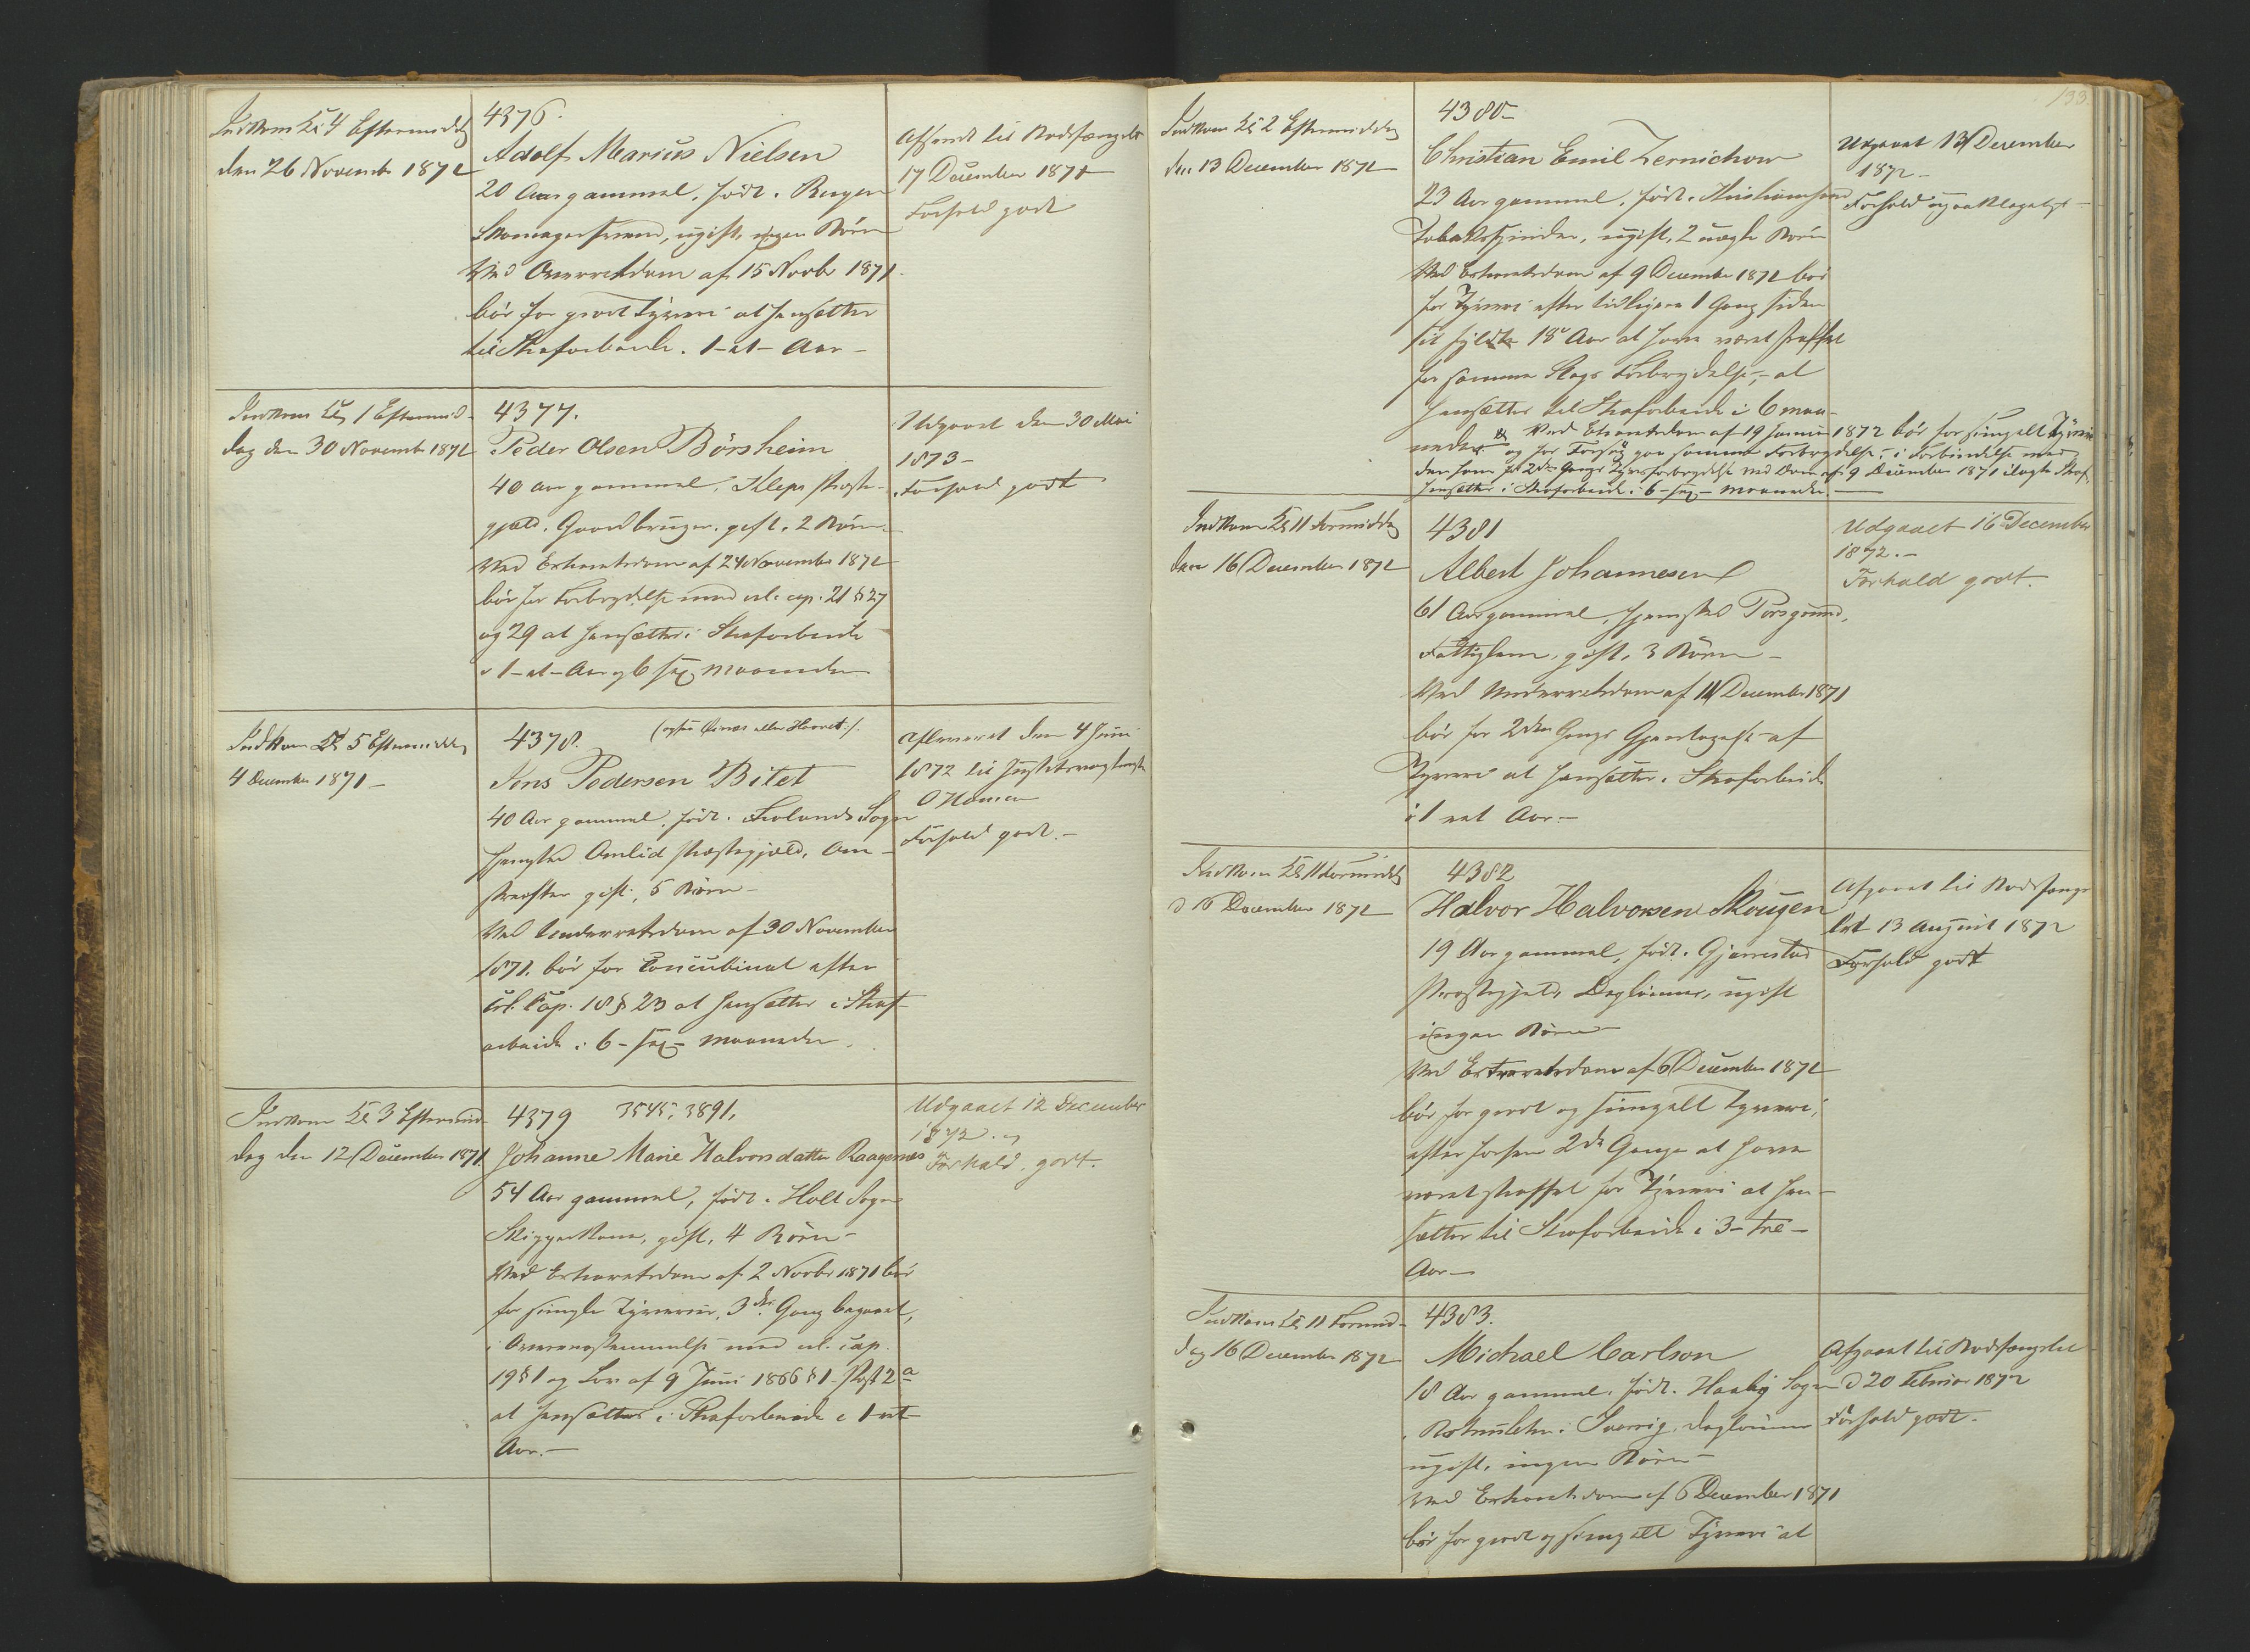 Indkom Kl 4 Eftermiddag
den 26 Novemb 1871
4376.
Adolf Marius Nielsen
20 Aar gammel, født i Bergen
Skomagersvend, ugift, ingen Børn
Ved Overretsdom af 15 Novbr 1871
bør for grovt Tyveri at hensættes
til Strafarbeide i 1 - et - Aar -
Afsendt til Bodsfængslet
17 December 1871
Forhold godt
Indkom Kl 1 Eftermid-
dag den 30 Novemb 1871
4377.
Peder Olsen Börsheim
40 Aar gammel, Kleps Præste-
gjæld. Gaardbruger, gift, 2 Børn
Ved Extraretsdom af 24 November 1871
bør for Forbrydelse mod crl. cap. 21 § 27
og 29 at hensættes i Strafarbeide
i 1 - et - Aar og 6 sex Maaneder
Udgaaet den 30 Mai
1873 -
Forhold godt
Indkom Kl 5 Eftermiddag
4 December 1871 -
4378.
Jens Pedersen Bitet
40 Aar gammel, født i Frolands Sogn
Hjemsted Omlid Præstegjæld, Om-
streifer gift, 5 Børn -
Ved Underretsdom af 30 November
1871 bør for Concubinat efter
Crl. Cap. 18 § 23 at hensættes i Straf-
arbeide i 6 - sex - Maaneder.
Afleveret den 4 Juni
1872 til
Forhold godt. -
Indkom Kl 3 Eftermid-
dag den 12 December 1871.
4379 3545, 3891,
Johanne Marie Halvorsdatter Raagenæs
54 Aar gammel, født i Holt Sogn
Skipperkone, gift, 4 Børn -
Ved Extraretsdom af 2 Novbr 1871 bør
for simple Tyverier, 3die Gang begaaet,
i Overensstemmelse med crl. cap.
19 § 1 og Lov af 9 Juni 1866 § 1 Post 2 a
at hensættes i Strafarbeide i 1 - et -
Aar. -
Udgaaet 12 December
1872.
Forhold godt.
133
Indkom Kl 2 Eftermiddag
den 13 December 1871
4380
Christian Emil Zernichow
23 Aar gammel, født i Kristiansand
Tobaksspinder, ugift, 2 uægte Børn
Ved Extraretsdom af 9 December 1871 bør
for Tyveri efter tidligere 1 Gang siden
sit fyldte 18 Aar at have været straffet
for samme Slags Forbrydelse, at
hensættes til Strafarbeide i 6 maa-
neder. Ved Extraretsdom af 19 Januar 1872 bør for simpelt Tyveri
og for Forsøg paa samme Forbrydelse, i Forbindelse med
den ham for 2den Gangs Tyvsforbrydelse ved Dom af 9 December 1871 ilagte Straf,
hensættes i Strafarbeide i 6 - sex - Maaneder. -
Udgaaet 13 December
1872 -
Forhold upaaklageligt -
Indkom Kl 11 Formiddag
den 16 December 1871
4381
Albert Johannesen
61 Aar gammel, Hjemsted Porsgrund,
Fattiglem, gift, 3 Børn -
Ved Underretsdom af 11 December 1871
bør for 2den Gangs Gjentagelse af
Tyveri at hensættes i Strafarbeide
i 1 - et Aar. -
Udgaaet 16 December
1872. -
Forhold godt.
Indkom Kl 11 Formiddag
d 16 December 1871
4382
Halvor Halvorsen Skougen
19 Aar gammel, født i Gjerrestad
Præstegjeld, Dagleiner, ugift
ingen Børn
Ved Extraretsdom af 6 December 1871
bør for grovt og simpelt Tyveri,
efter forhen 2de Gange at have
været straffet for Tyveri at hen-
sættes til Strafarbeide i 3 - tre -
Aar -
Afgaaet til Bodsfængs-
let 13 August 1872
Forhold godt
Indkom Kl 11 Formid-
dag 16 December 1871
4383.
Michael Carlson
18 Aar gammel, født i Haaby Sogn
i Sverrig, Dagleiner
ugift, ingen Børn -
Ved Extraretsdom af 6 December 1871
bør for grovt og simpelt Tyveri at
Afgaaet til Bodsfængslet
d 20 Februar 1872
Forhold godt.